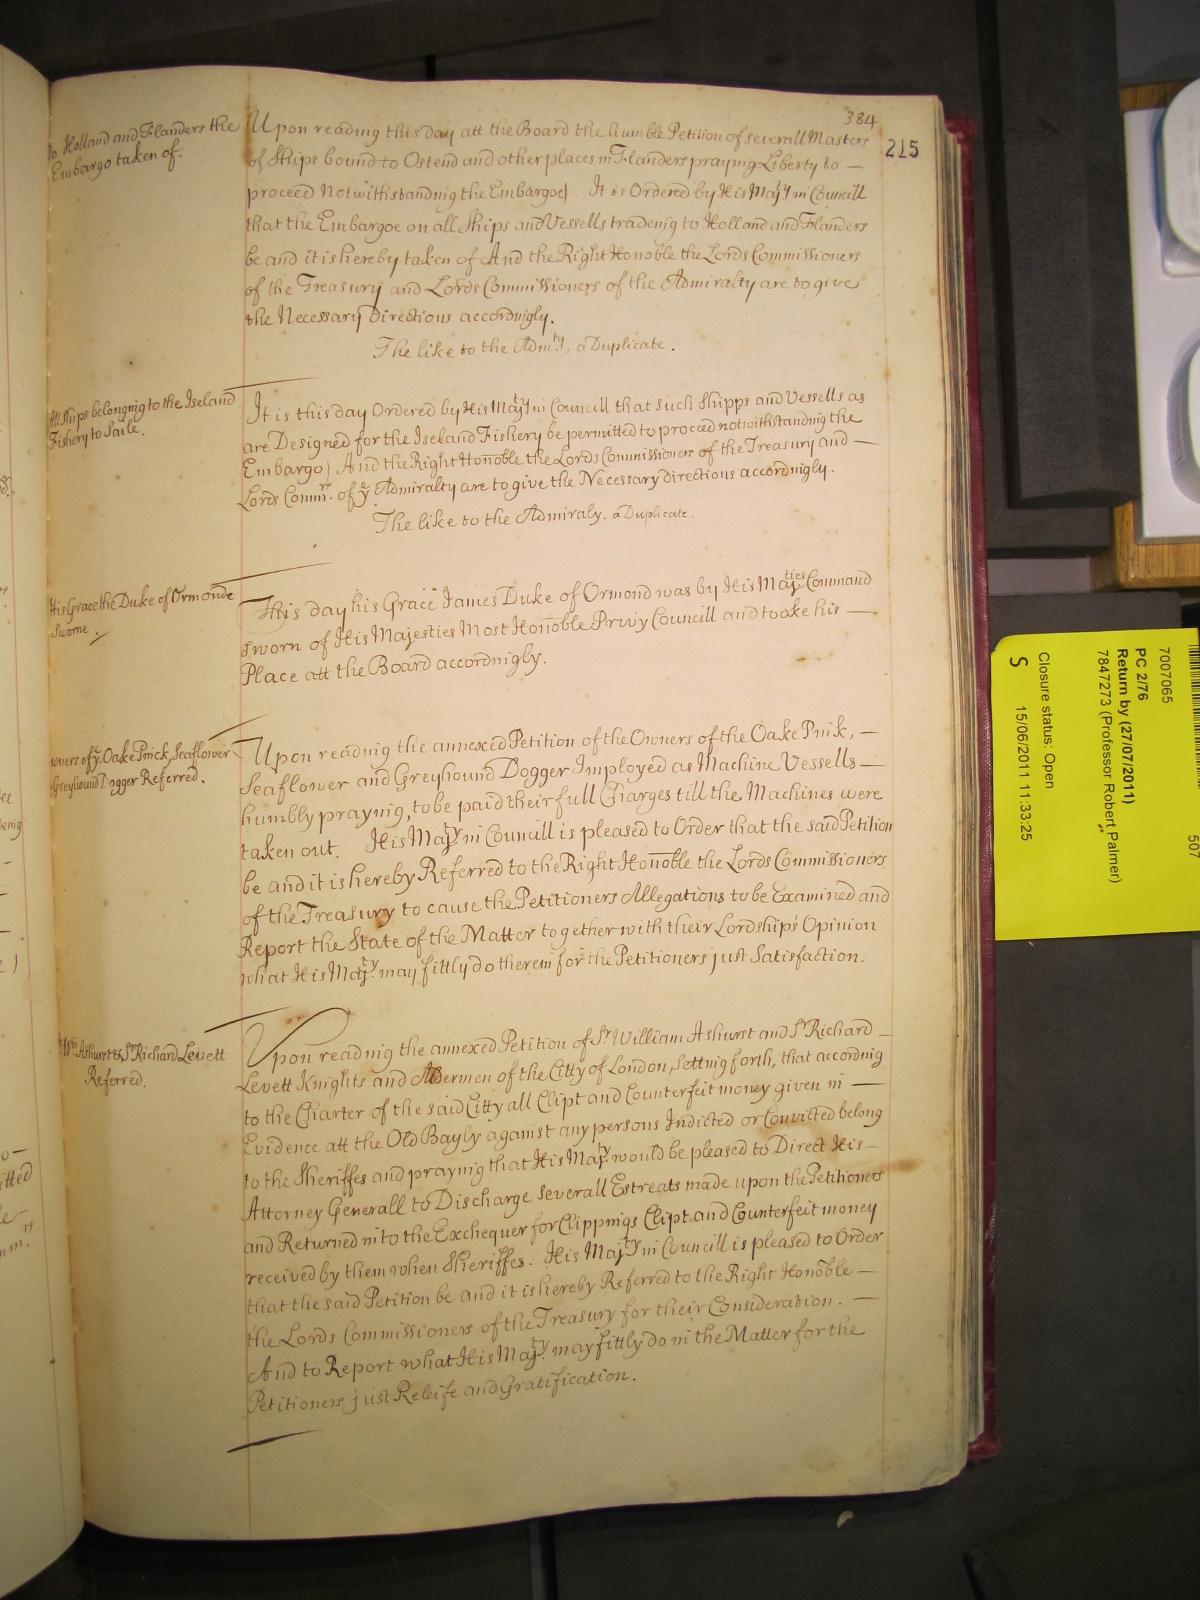 384
215
to Holland and Flanders the
Embargo taken of.
Upon reading this day att the Board the humble Petition of severall Masters
of Ships bound to Ostend and other places in Flanders praying Liberty to —
proceed Notwithstanding the Embargoe). It is Ordered by His Maj.ty in Councill
that the Embargoe on all Ships and Vessells tradeing to Holland and Flanders
be and it is hereby taken of And the Right Honoble the Lords Commissioners
of the Treasury and Lords Commissioners of the Admiralty are to give
the Necessary Directions accordingly.
The like to the Adm.ty, a Duplicate.
All Ships belonging to the Iseland
Fishery to Saile.
It is this day Ordered by His Maj.ty in Councill that such Shipps and Vessells as
are Designed for the Iseland Fishery be permitted to proceed notwithstanding the
Embargo) And the Right Honoble the Lords Commissioners of the Treasury and —
Lords Comm.rs of ye Admiralty are to give the Necessary directions accordingly.
The like to the Admiraly. a Duplicate.
His Grace the Duke of Ormonde
Sworne.
This day his Grace James Duke of Ormond was by His Maj.ties Command
sworn of His Majesties Most Honoble Privy Councill and tooke his —
Place att the Board accordingly.
wners of ye Oake Pinck, Seaflower
Greyhound Dogger Referred.
Upon reading the annexed Petition of the Owners of the Oake Pink, —
Seaflower and Greyhound Dogger Imployed as Machine Vessells —
humbly praying, to be paid their full Charges till the Machines were
taken out. His Maj.ty in Councill is pleased to Order that the said Petition
be and it is hereby Referred to the Right Honoble the Lords Commissioners
of the Treasury to cause the Petitioners Allegations to be Examined and
Report the State of the Matter together with their Lordships Opinion
what His Maj.ty may fittly do therein for the Petitioners just Satisfaction.
Wm Ashurst & Sr Richard Levett
Referred.
Upon reading the annexed Petition of Sr William Ashurst and Sr Richard —
Levett Knights and Aldermen of the Citty of London, Setting forth, that according
to the Charter of the said Citty all Clipt and Counterfeit money given in —
Evidence att the Old Bayly against any persons Indicted or Convicted belong
to the Sheriffes and praying that His Maj.ty would be pleased to Direct His —
Attorney Generall to Discharge severall Estreats made upon the Petitioners
and Returned into the Exchequer for Clippings Clipt and Counterfeit money
received by them when Sheriffes. His Maj.ty in Councill is pleased to Order
that the said Petition be and it is hereby Referred to the Right Honoble —
the Lords Commissioners of the Treasury for their Consideration. —
And to Report what His Maj.ty may fittly do in the Matter for the
Petitioners just Releife and Gratification.
7007065
507
PC 2/76
Return by (27/07/2011)
7847273 (Professor Robert Palmer)
Closure status: Open
S
15/06/2011 11:33:25